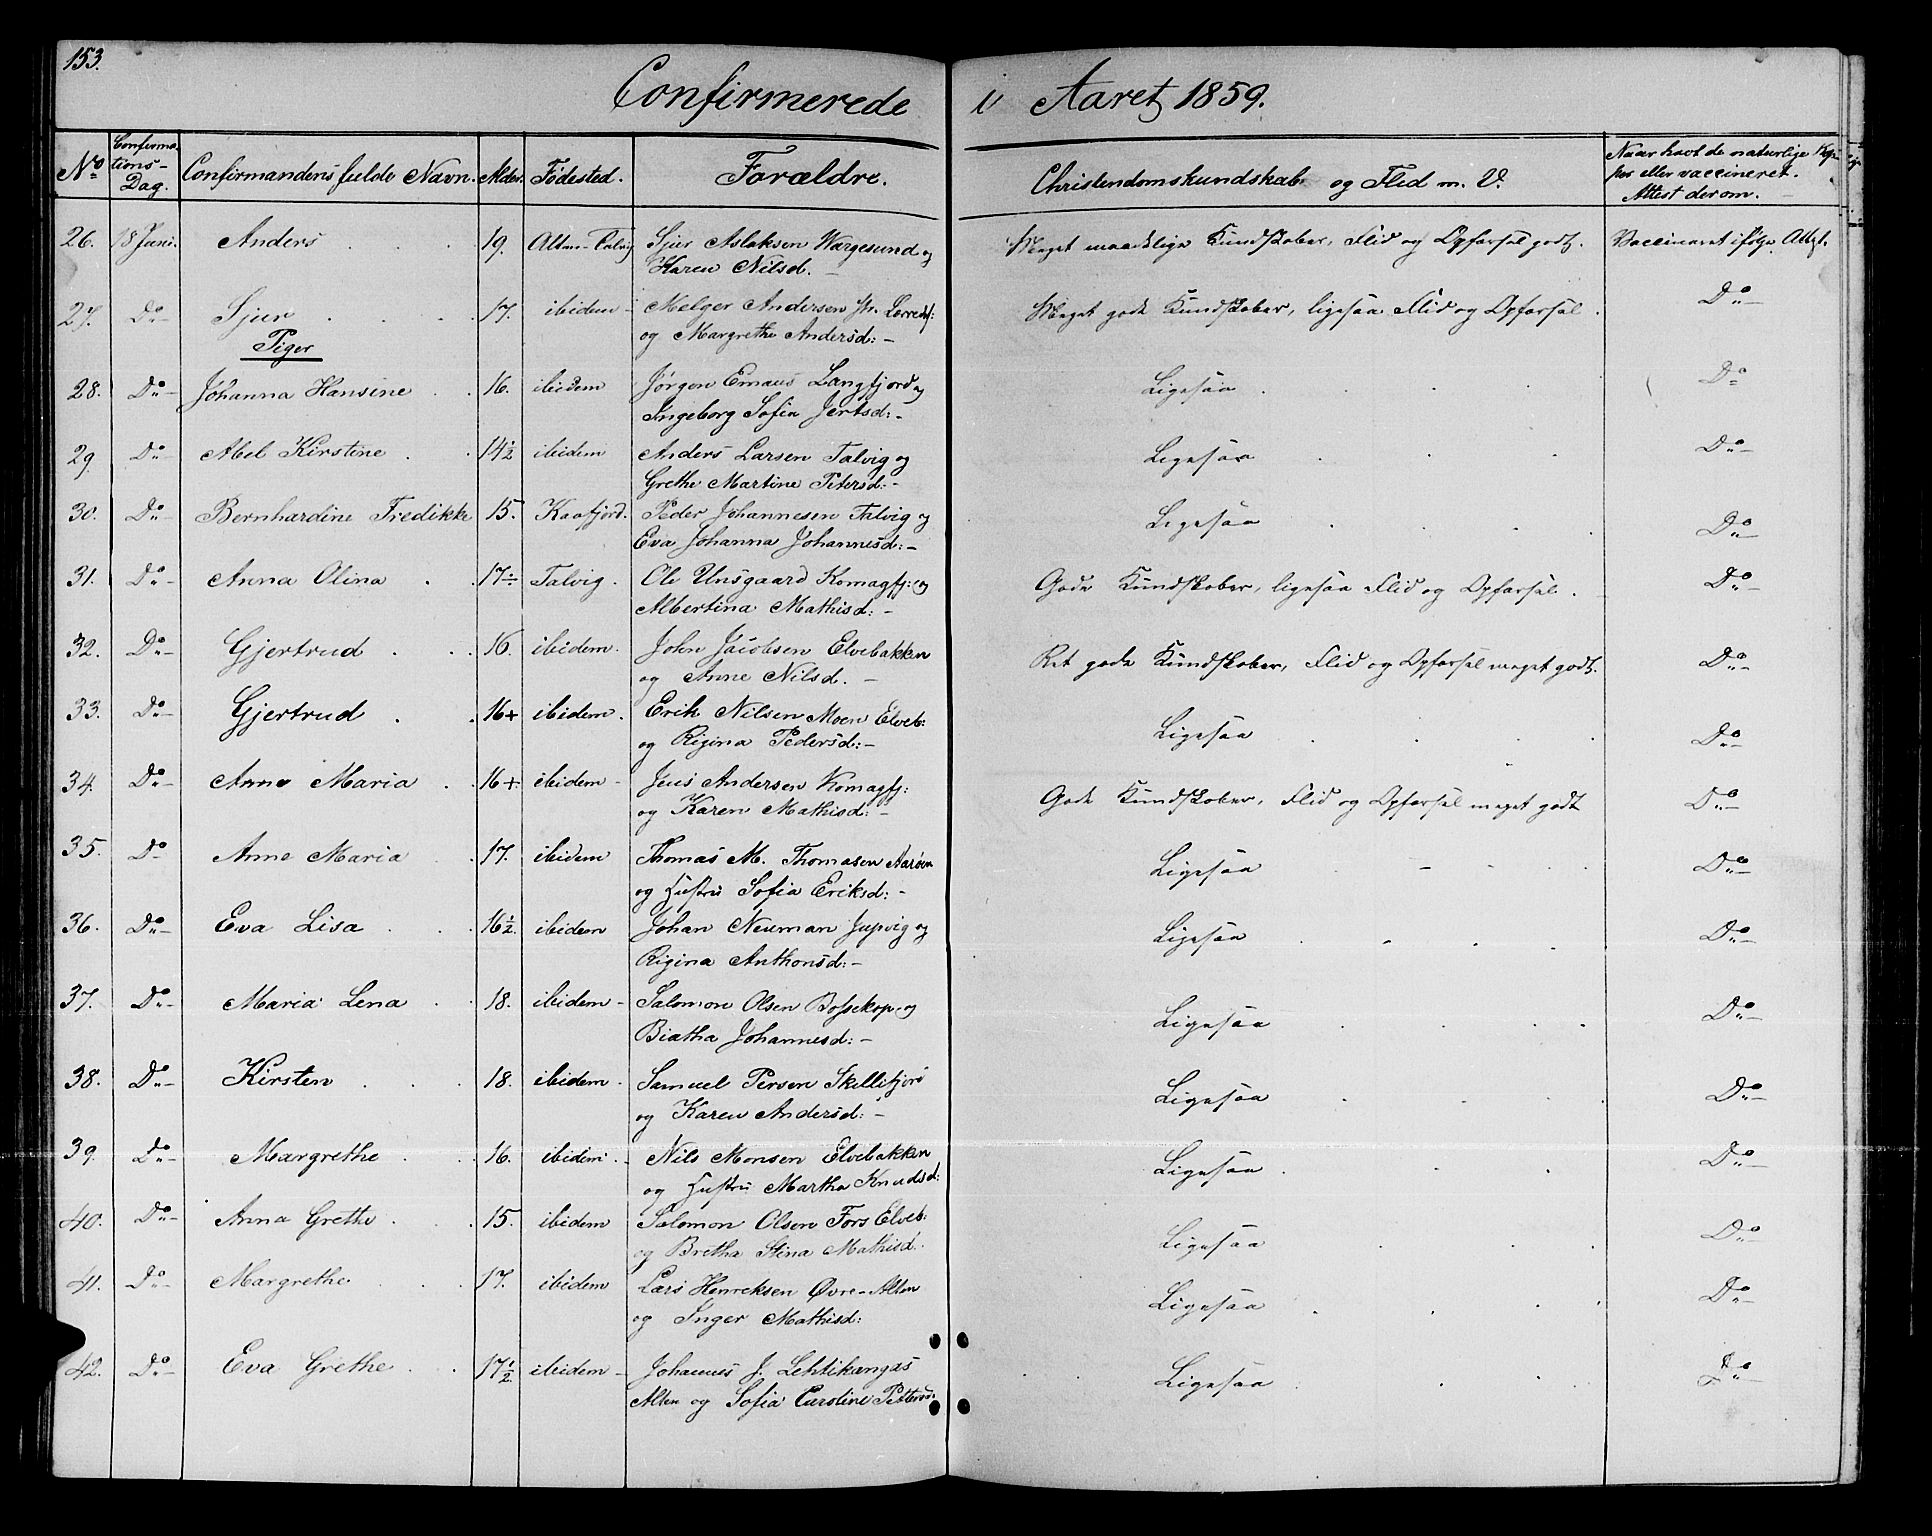 153.
Confirmerede i Aaret 1859.
No Confirmations-Dag. Confirmandens fulde Navn. Alder. Fødested. Forældre. Christendomskundskab og Flid m. V. Naar havt de naturlige Kopper eller vaccineret. Attest derom.
26. 18 Juni. Anders 19. Alten-Talvig Sjur Aslaksen Wargesund og Meget maadelige Kundskaber, Flid og Opførsel godt. Vaccineret ifølge Attest.
Karen Nilsd.
27. Do Sjur 17. ibidem Melger Andersen og Margrethe Andersd: Meget gode Kundskaber, ligesaa Flid og Opførsel. Do
Piger
28. Do Johanna Hansine 16. ibidem Jørgen Emaus Langfjord og Ligesaa Do
Ingeborg Sofia
29 Do Abel Kirstine 14½ ibidem Anders Larsen Talvig og Ligesaa Do
Grethe Martine Petersd:
30. Do Bernhardine Fredikke 15. Kaafjord. Peder Johannesen Talvig og Ligesaa Do
Eva Johanna Johannesd:
31. Do Anna Olina 17÷ Talvig. Ole Unsgaard Komagfj: og Gode Kundskaber, ligesaa Flid og Opførsel. Do
Albertina Mathisd:
32. Do Gjertrud 16. ibidem. John Jacobsen Elvebakken Ret gode Kundskaber, Flid og Opførsel meget godt. Do
og Anne Nilsd.
33. Do Gjertrud 16+ ibidem. Erik Nilsen Moen Elveb: Ligesaa Do
og Rigina Pedersd:
34. Do Anne Maria 16+ ibidem Jens Andersen Komagfj: Gode Kundskaber, Flid og Opførsel meget godt Do
og Karen Mathisd:
35. Do Anne Maria 17. ibidem Thomas M. Thomasen Aarøen Ligesaa Do
og Hustru Sofia Eriksd:
36. Do Eva Lisa 16½ ibidem Johan Neuman Jupvig og Ligesaa Do
Rigina Anthonsd:
37. Do Maria Lena 18. ibidem Salomon Olsen Bossekop og Ligesaa Do
Biatha Johannesd:
38. Do Kirsten 18. ibidem Samuel Persen Skillefjord Ligesaa Do
og Karen Andersd:
39. Do Margrethe 16. ibidem Nils Monsen Elvebakken Ligesaa Do
og Hustru Martha Knudsd:
40. Do Anna Grethe 15. ibidem Salomon Olsen Fors Elveb: Ligesaa Do
og Bretha Stina Mathisd.
41. Do Margrethe 17. ibidem Lars Henriksen Øvre-Alten Ligesaa Do
og Inger Mathisd:
42. Do Eva Grethe 17½ ibidem Johannes J. Lehtikangas Ligesaa Do
Alten og Sofia Caroline Pettersd: